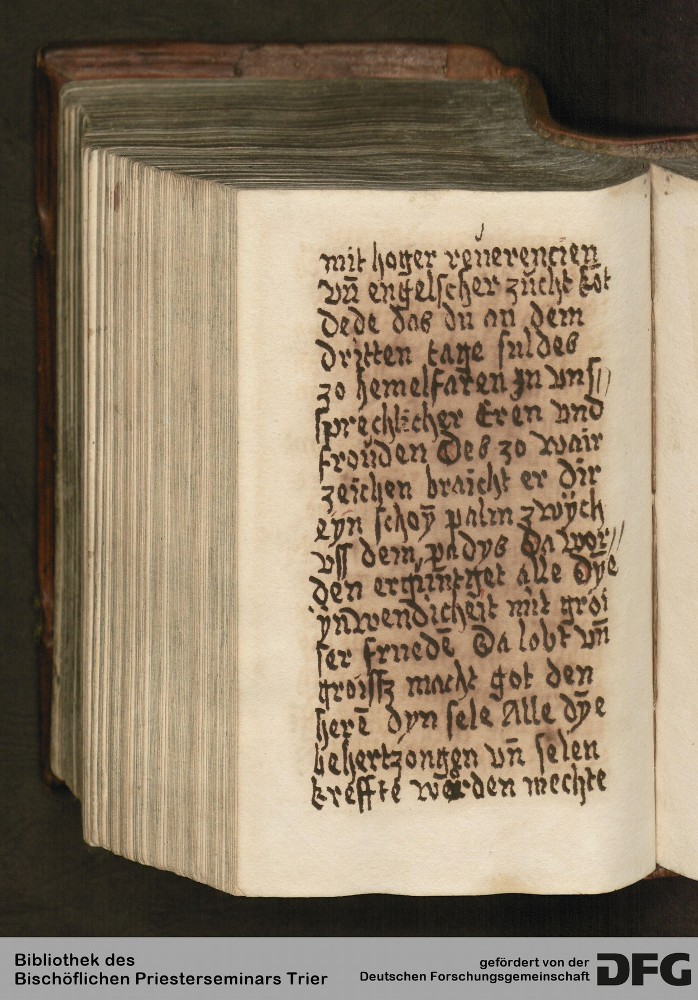 mit hoger reuerencien
vn̄ engelscher zucht kōt
dede das du an dem
dritten tage suldes
zo hemelfaren jn vns//
sprechlicher Eren vnd
frouden Des zo wair
zeichen braicht er dir
eyn schoȳ palm zwych
vss dem padys Da wor//
den ergüntget alle dye
ynwendicheit mit groi
ser frueden̄ Da lobt vn̄
groissz macht got den
herē dyn sele Alle dye
behertzongen vn̄ selen
kreffte werden mechte
Bibliothek des
Bischöflichen Priesterseminars Trier
gefördert von der
Deutschen Forschungsgemeinschaft
DFG